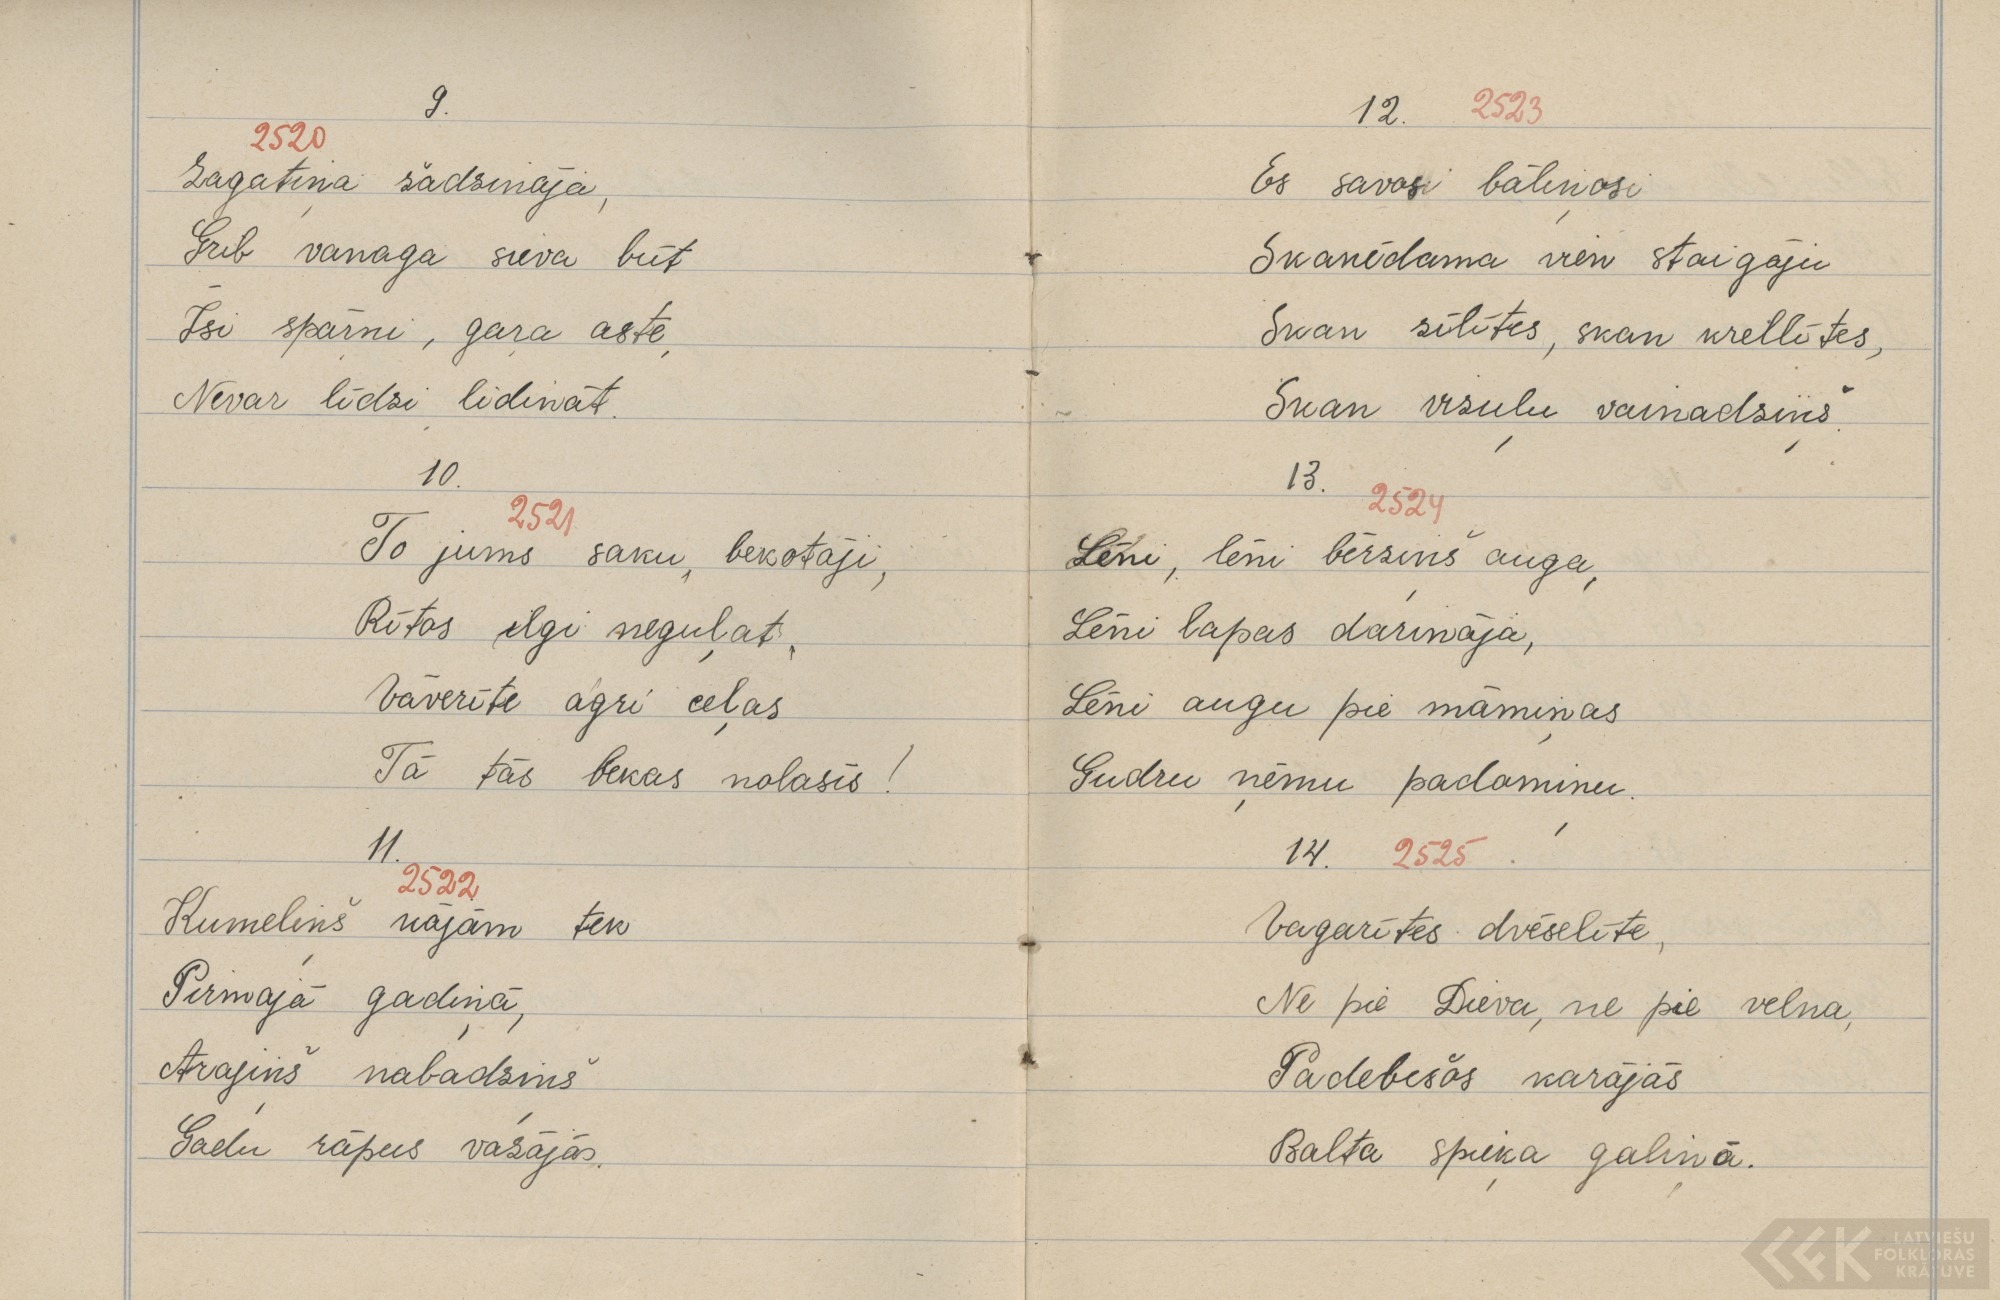 9.
2520
Zagatiņa žādzināja,
Grib vanaga sieva būt
Īsi spārni, gara aste,
Nevar līdzi lidināt.
10.
2521
To jums saku, bekotāji,
Rītos ilgi neguļat,
Vāverīte agri ceļas
Tā tās bekas nolasīs!
11.
2522
Kumeliņš kājām tek
Pirmajā gadiņā,
Arājiņš nabadziņš
Gadu rāpus vazājās.
12. 2523
Es savosi bāliņosi
Skanēdama vien staigāju
Skan zīlītes, skan krellītes,
Skan vizuļu vainadziņš.
13.
2524
Lēni, lēni bērziņš auga,
Lēni lapas darināja,
Lēni augu pie māmiņas
Gudru ņēmu padomiņu.
14. 2525
Vagarītes dvēselīte,
Ne pie Dieva, ne pie velna,
Padebešos karājās
Balta spieķa galiņā.
LATVIEŠU
FOLKLORAS
KRĀTUVE